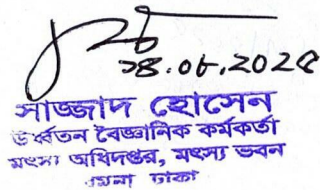 ২৪.০৮.২০২৫
সাজ্জাদ হোসেন
উর্ধ্বতন বৈজ্ঞানিক কর্মকর্তা
মৎস্য অধিদপ্তর, মৎস্য ভবন
রমনা ঢাকা